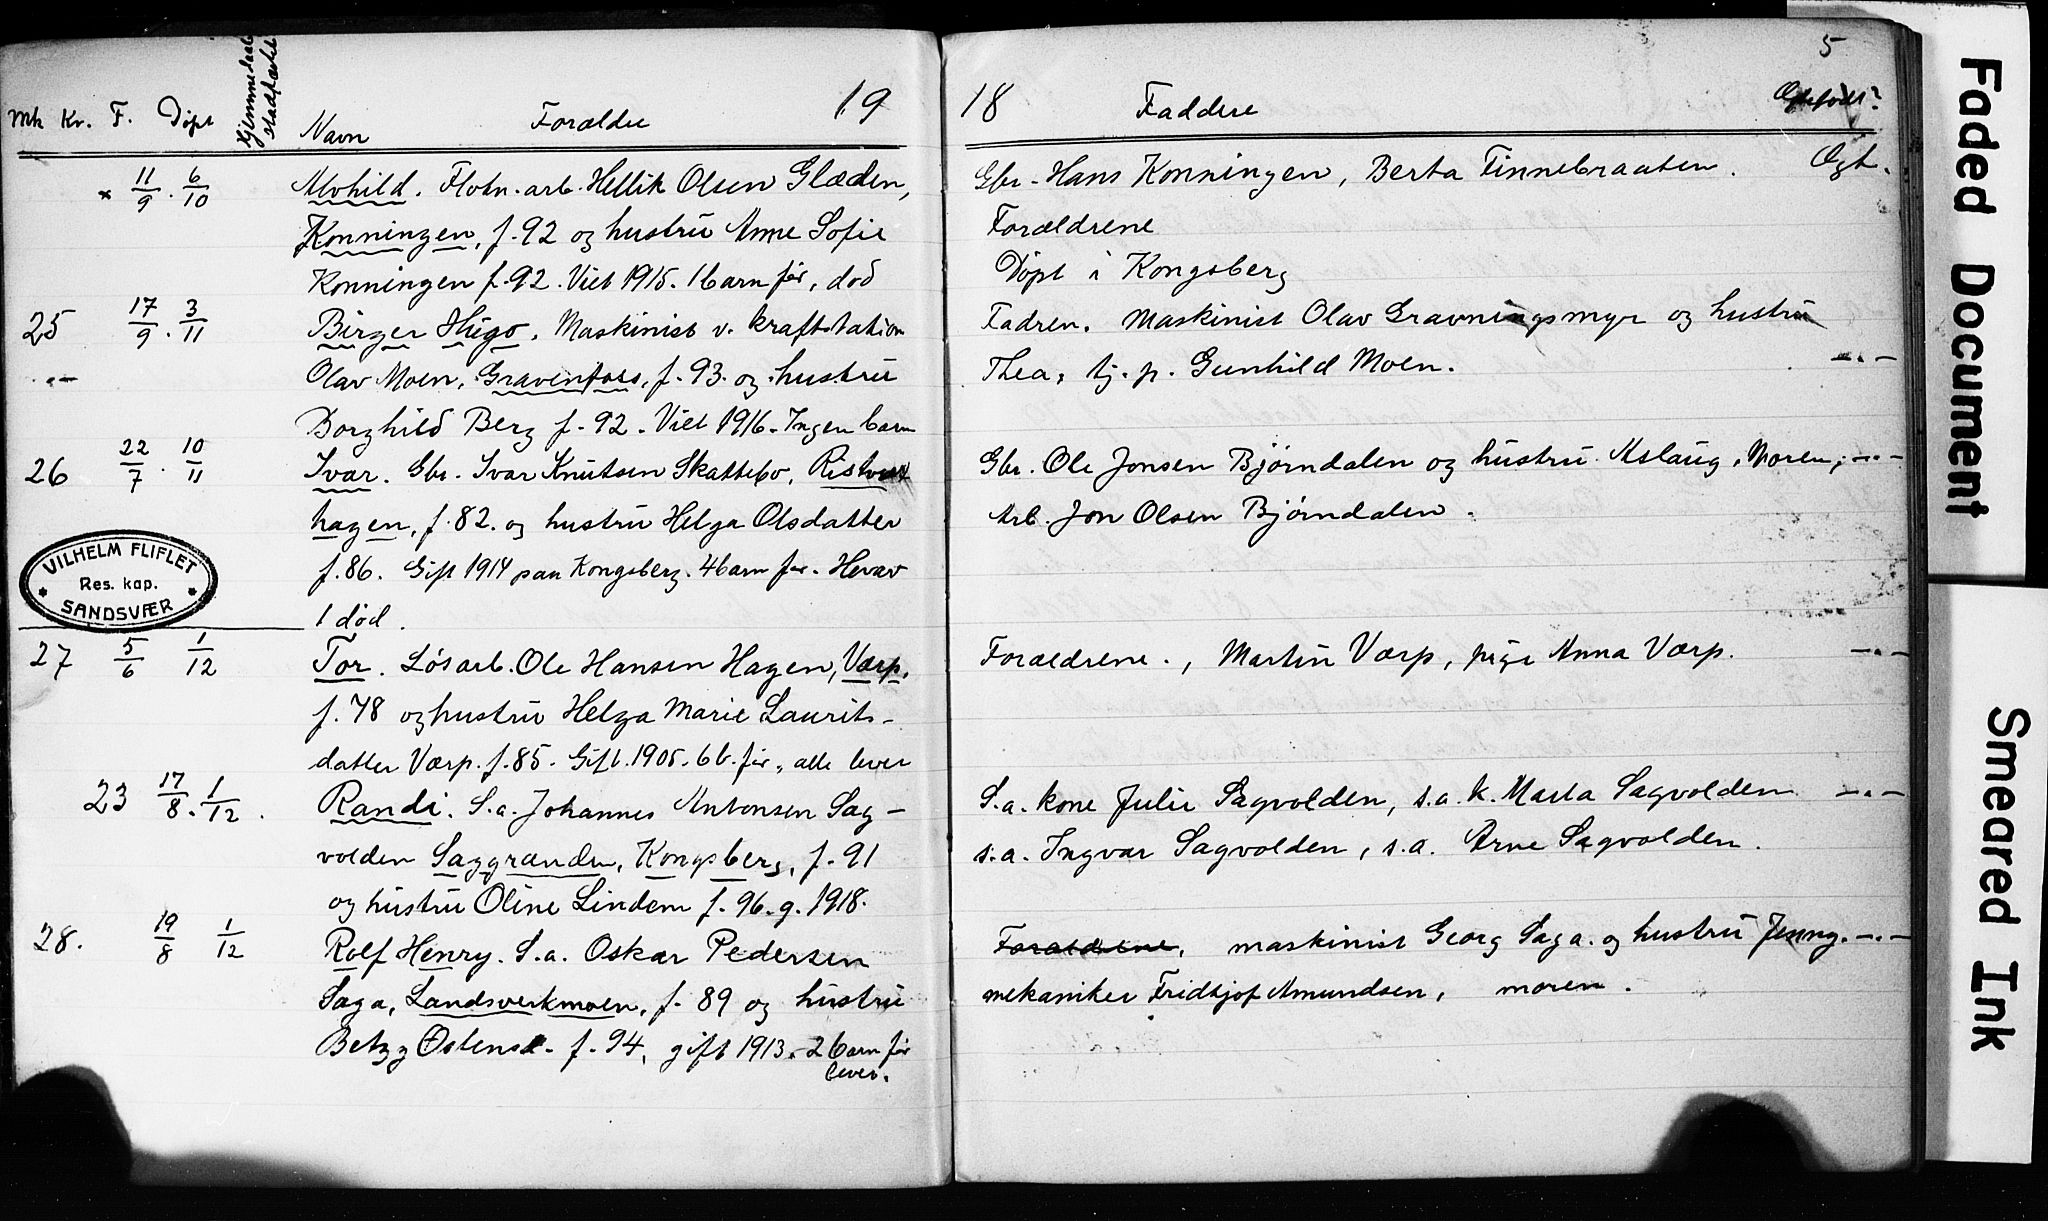 5
19 18
Mk Kv. F. Døpt Hjemmedøbt stadfæstet Navn Forældre
Faddere Ogtefødt?
11/9 . 6/10 Alvhild. Fløtn. arb. Hellik Olsen Glæden,
Konningen, f. 92 og hustru Anne Sofie
Konningen f. 92. Viet 1915. 1 barn før, død
25 17/9 . 3/11 Birger Hugo. Maskinist v. kraftstation
Olav Moen, Gravenfoss, f. 93. og hustru
Borghild Berg f. 92. Viet 1916. Ingen barn
26 22/7 . 10/11 Ivar. Gbr. Ivar Knutsen Skattebo, Ristvet
hagen, f. 82. og hustru Helga Olsdatter
f. 86. Gift 1914 paa Kongsberg. 4 barn før. Herav
1 død.
VILHELM FLIFLET
Res. kap.
SANDSVÆR
27 5/6 1/12 Tor. Løsarb. Ole Hansen Hagen, Værp,
f. 78 og hustru Helga Marie Laurits-
datter Værp. f. 85. Gift. 1905. 6 b. før, alle lever
23 17/8 . 1/12 . Randi. S.a. Johannes Antonsen Sag-
volden Saggrenden, Kongsberg, f. 91
og hustru Oline Lindem f. 96. g. 1918.
28. 19/8 1/12 Rolf Henry. S.a. Oskar Pedersen
Saga, Landsverkmoen, f. 89 og hustru
Betzy Ostensd. f. 94, gift 1913. 2 barn før
lever.
Gbr. Hans Konningen, Berta Tinnebraaten. Ogt.
Forældrene
Døpt i Kongsberg
Fadren, Maskinist Olav Gravningsmyr og hustru
Thea, tj. p. Gunhild Moen. -"-
Gbr. Ole Jonsen Bjørndalen og hustru Aslaug, Moren, -"-
Arb. Jon Olsen Bjørndalen.
Forældrene., Martin Værp, pige Anna Værp. -"-
S.a. kone Julie Sagvolden, s.a. k. Marta Sagvolden -"-
s.a. Ingvar Sagvolden, s.a. Arne Sagvolden.
Forældrene, maskinist Georg Saga. og hustru Jenny. -"-
mekaniker Fridtjof Amundsen, moren.
Faded Document
Smeared Ink